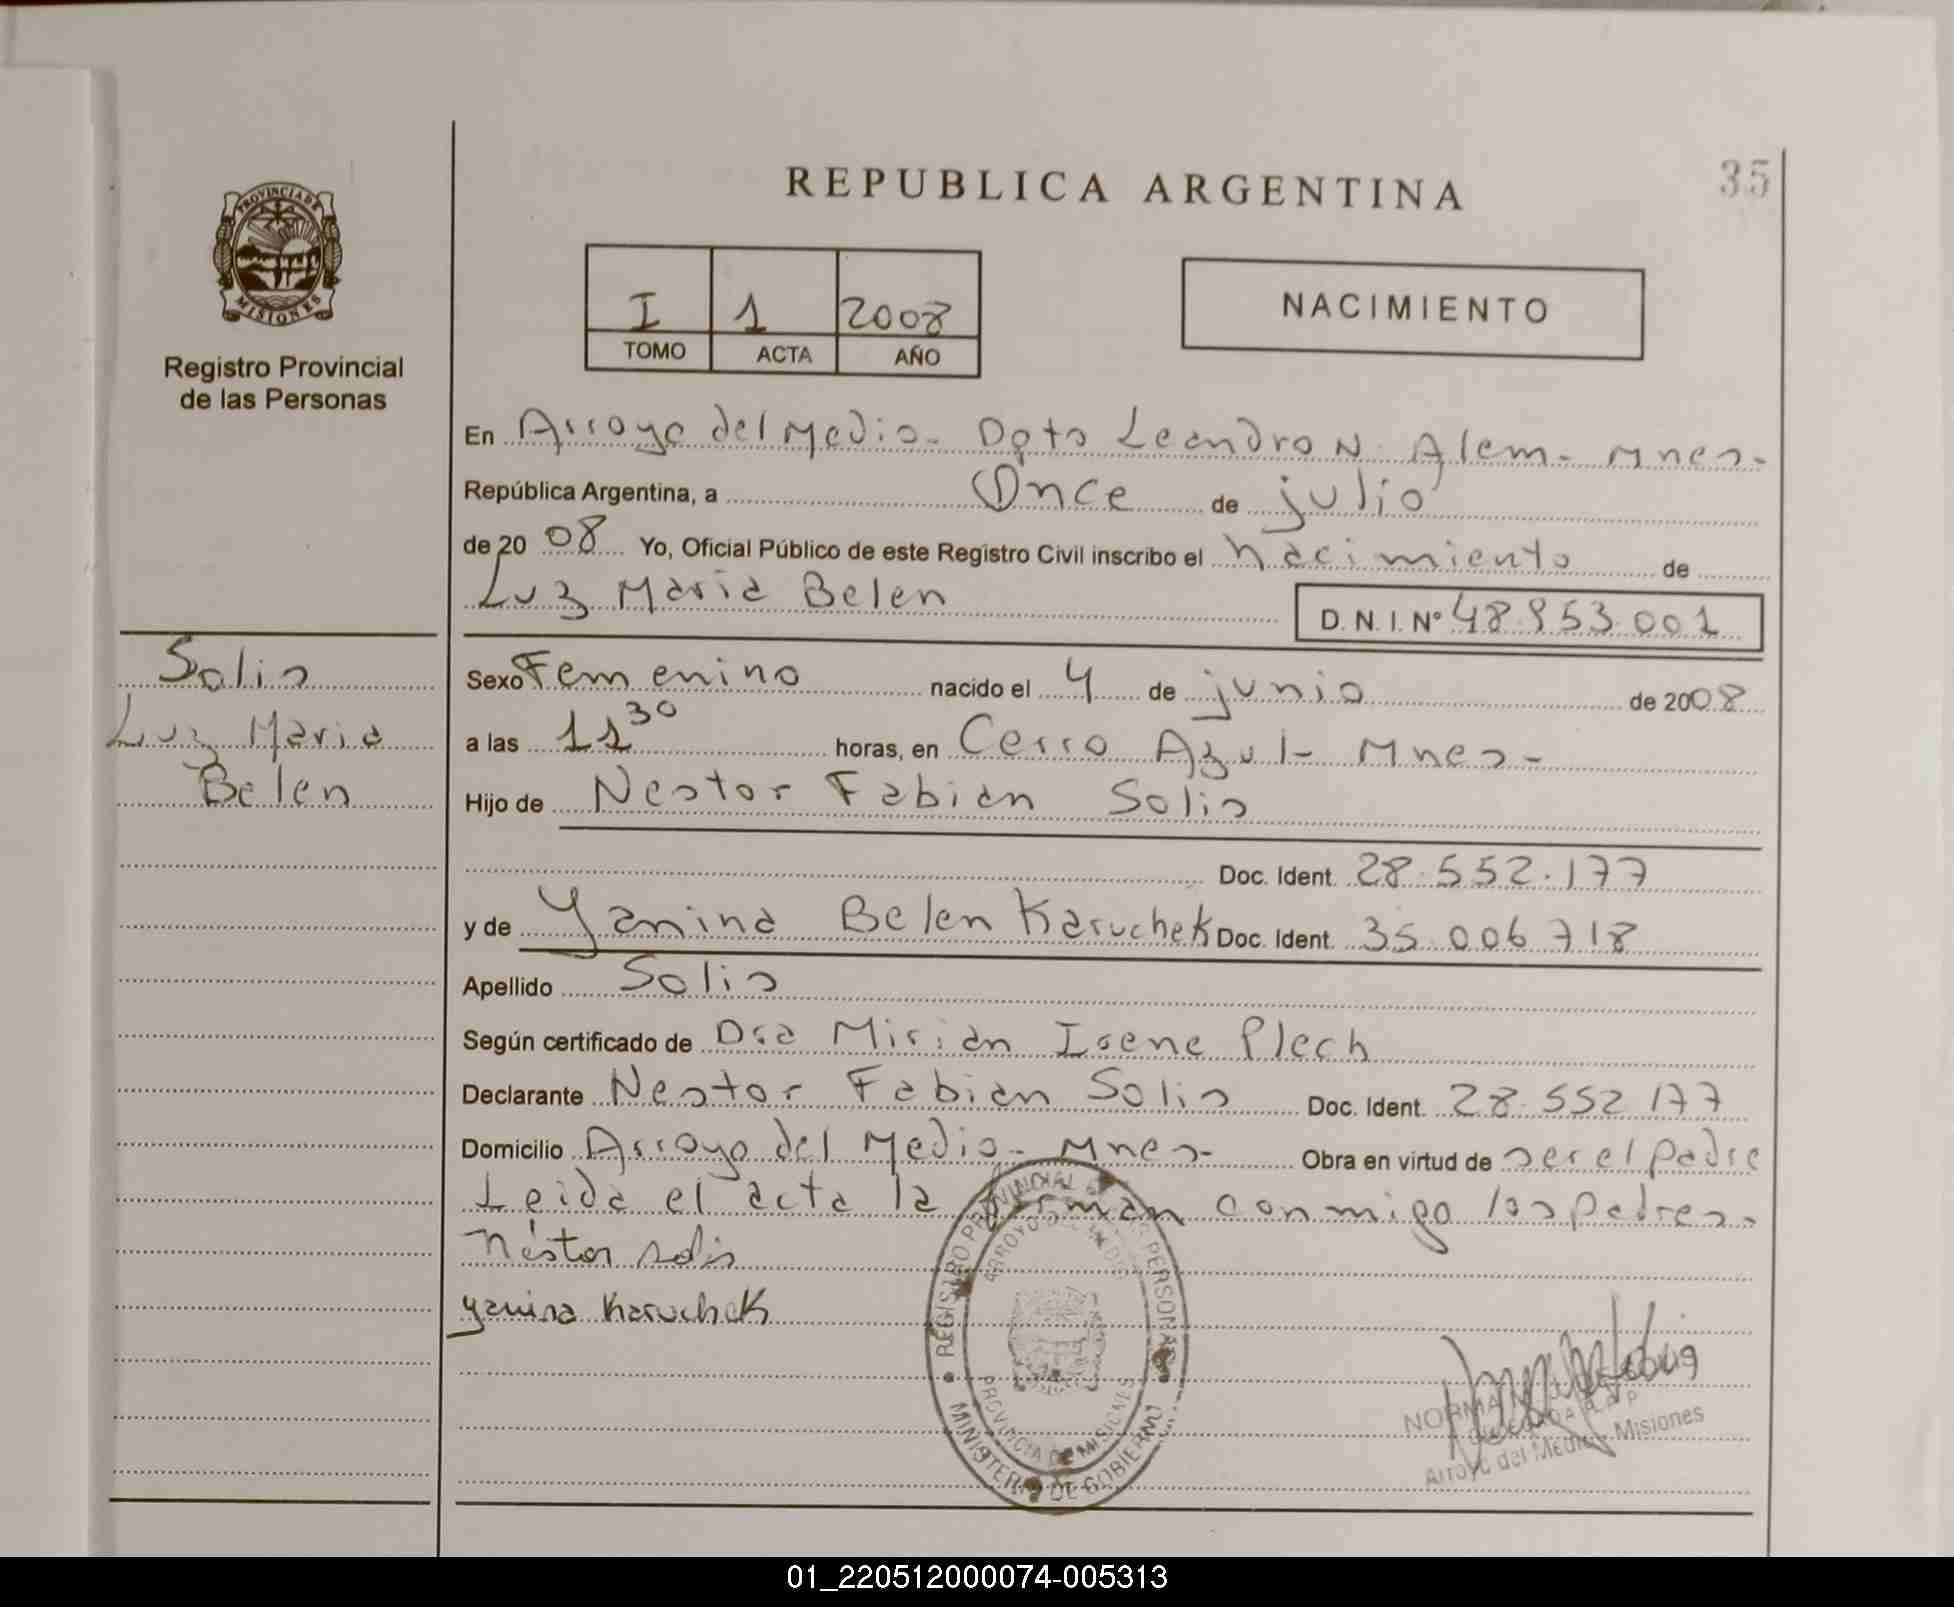 REPUBLICA ARGENTINA
35
PROVINCIA DE
MISIONES
Registro Provincial
de las Personas
I 1 2008
TOMO ACTA AÑO
NACIMIENTO
En Arroyo del Medio - Dpto Leandro N. Alem - Mnes-
República Argentina, a Once de julio
de 20 08 Yo, Oficial Público de este Registro Civil inscribo el nacimiento de
Luz Maria Belen
D.N.I. Nº 48.853.001
Solis
Luz Maria
Belen
Sexo Femenino nacido el 4 de junio de 2008
a las 11 30 horas, en Cerro Azul - Mnes -
Hijo de Nestor Fabian Solis
Doc. Ident. 28.552.177
y de Yanina Belen Karuchek Doc. Ident. 35.006 718
Apellido Solis
Según certificado de Dra Mirian Irene Plech
Declarante Nestor Fabian Solis Doc. Ident. 28.552 177
Domicilio Arroyo del Medio - Mnes - Obra en virtud de ser el padre
Leida el acta la firman conmigo los padres.
Néstor Solis
Yanina Karuchek
REGISTRO PROVINCIAL DE PERSONAS
ARROYO DEL MEDIO
PROVINCIA DE MISIONES
MINISTERIO DE GOBIERNO
NORMA
Arroyo del Medio - Misiones
01_220512000074-005313